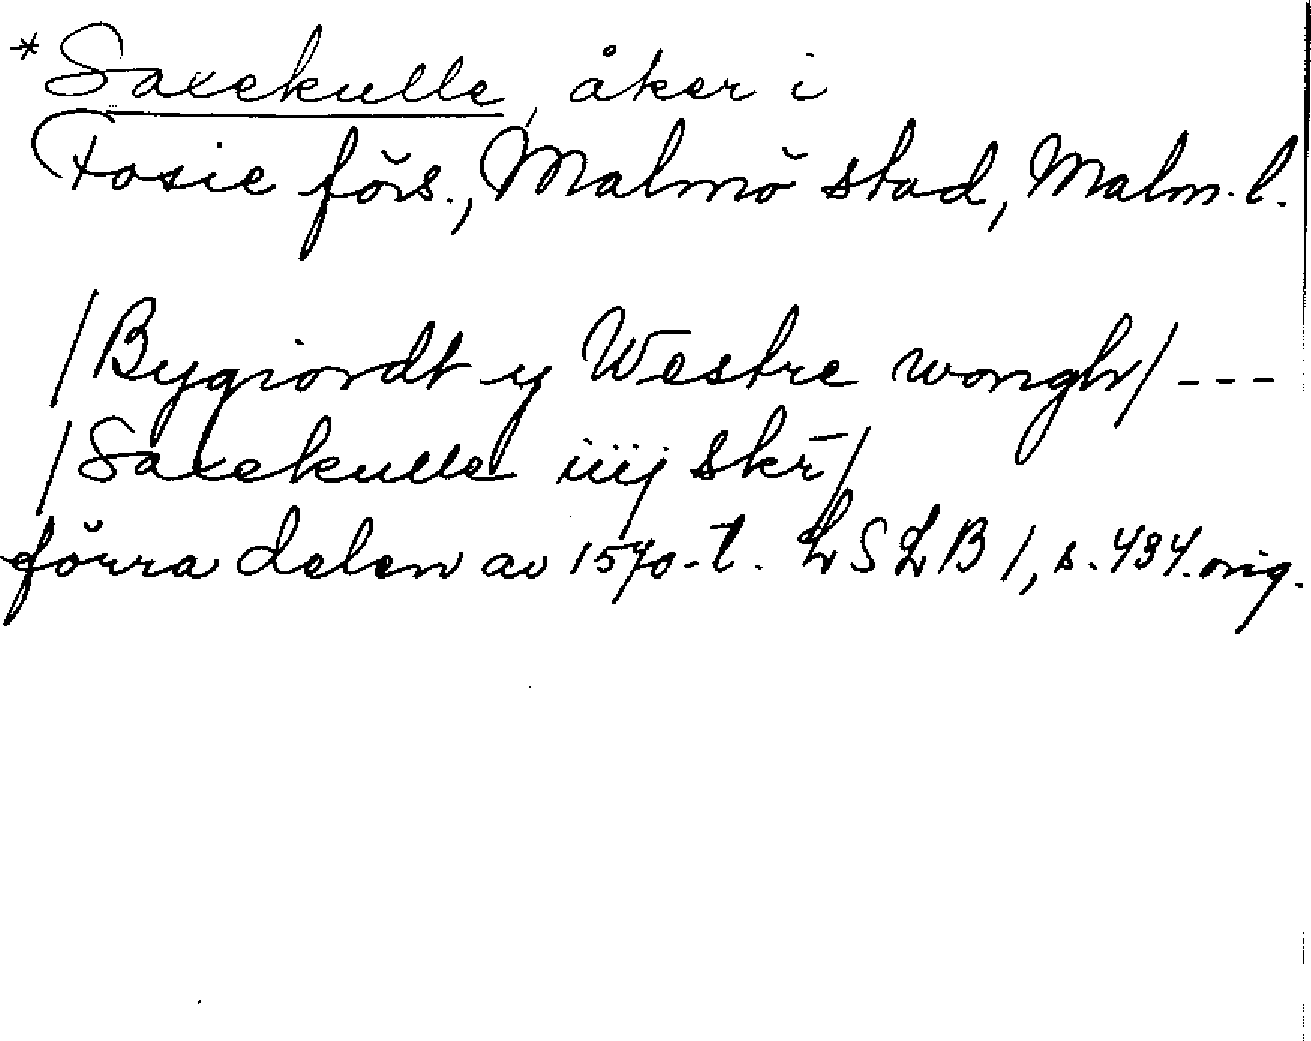 *Saxekulle, åker i
Fosie förs., Malmö stad, Malm. l.
/Bygiordt y Westre wongh/ ---
/Saxekulle iiij skr̄/
förra delen av 1570-t. LSLB 1, s. 434. orig.